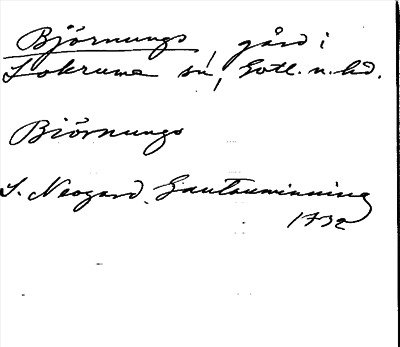 Björnungs, gård i
Lokrume sn, Gotl. n. hd.
Biörnungs
L. Neogard, Gautauminning
1732